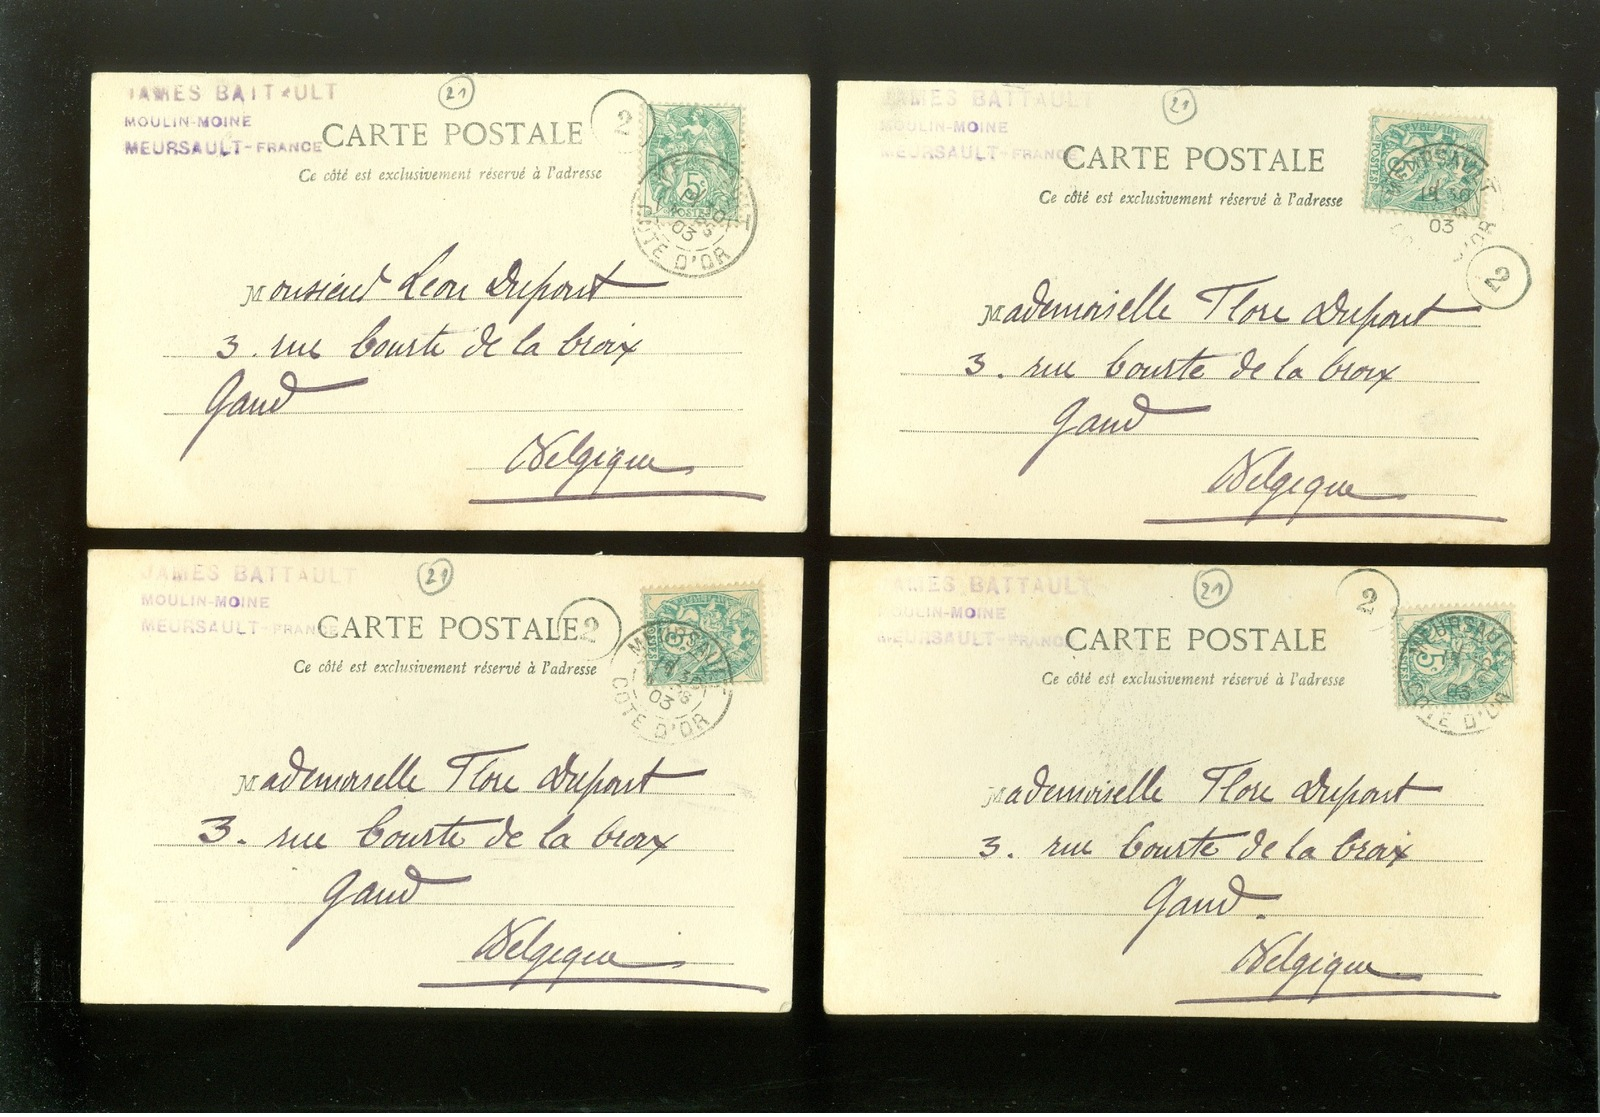 JAMES BATTAULT
MOULIN-MOINE
MEURSAULT-FRANCE
21
2
CARTE POSTALE
Ce côté est exclusivement réservé à l'adresse
5c
POSTES
03
COTE D'OR
Monsieur Léon Dupont
3. rue Courte de la Croix
Gand
Belgique
JAMES BATTAULT
MOULIN-MOINE
MEURSAULT-FRANCE
21
CARTE POSTALE
Ce côté est exclusivement réservé à l'adresse
POSTES
MEURSAULT
18 30
03
D'OR
2
Mademoiselle Flore Dupont
3. rue Courte de la Croix
Gand
Belgique
JAMES BATTAULT
MOULIN-MOINE
MEURSAULT-FRANCE
21
CARTE POSTALE
2
Ce côté est exclusivement réservé à l'adresse
MEURSAULT
03
COTE D'OR
Mademoiselle Flore Dupont
3. rue Courte de la Croix
Gand
Belgique
JAMES BATTAULT
MOULIN-MOINE
MEURSAULT-FRANCE
21
2
CARTE POSTALE
Ce côté est exclusivement réservé à l'adresse
MEURSAULT
5c
03
COTE D'OR
Mademoiselle Flore Dupont
3. rue Courte de la Croix
Gand.
Belgique